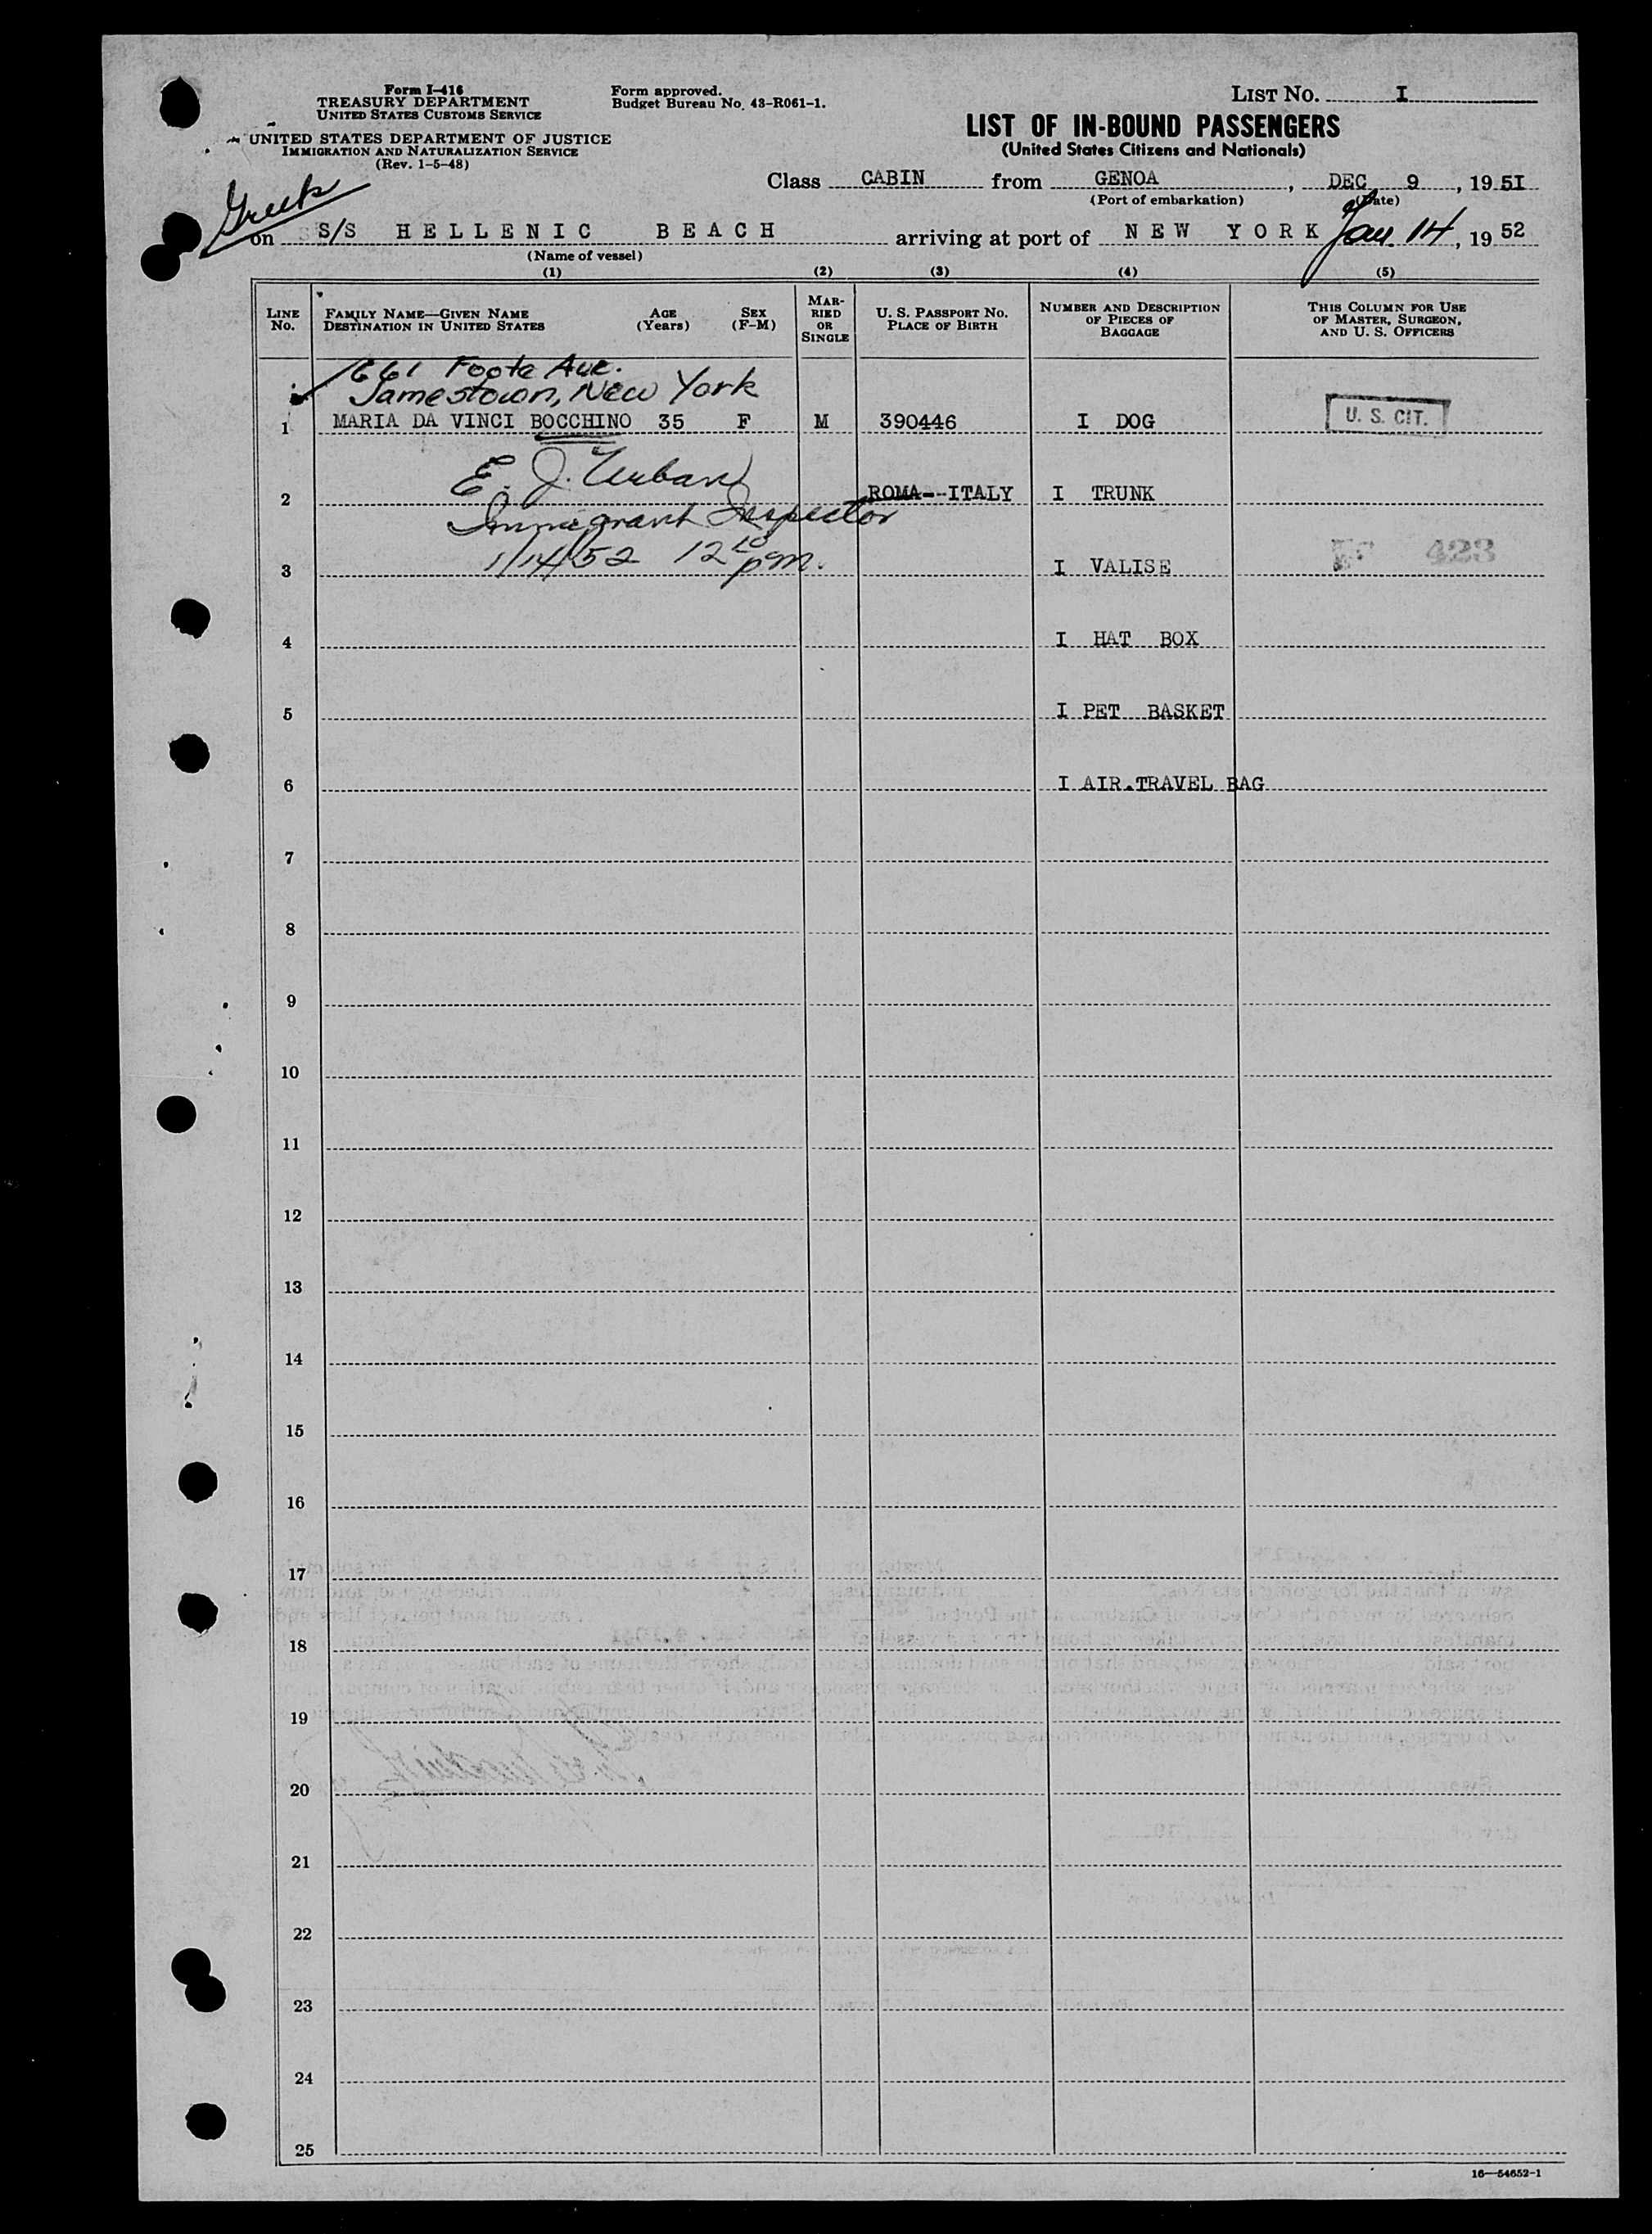 Form I-416
TREASURY DEPARTMENT
UNITED STATES CUSTOMS SERVICE
UNITED STATES DEPARTMENT OF JUSTICE
IMMIGRATION AND NATURALIZATION SERVICE
(Rev. 1-5-48)
Form approved.
Budget Bureau No. 43-R061-1.
LIST NO. I
LIST OF IN-BOUND PASSENGERS
(United States Citizens and Nationals)
Greek
Class CABIN from GENOA, DEC 9, 1951
(Port of embarkation) (Date)
on S/S HELLENIC BEACH arriving at port of NEW YORK Jan. 14, 1952
(Name of vessel)
(1) (2) (3) (4) (5)
LINE No. FAMILY NAME—GIVEN NAME DESTINATION IN UNITED STATES AGE (Years) SEX (F-M) MARRIED OR SINGLE U. S. PASSPORT NO. PLACE OF BIRTH NUMBER AND DESCRIPTION OF PIECES OF BAGGAGE THIS COLUMN FOR USE OF MASTER, SURGEON, AND U. S. OFFICERS
661 Foote Ave.
Jamestown, New York
1 MARIA DA VINCI BOCCHINO 35 F M 390446 I DOG U. S. CIT.
E. J. Urban
2 ROMA--ITALY I TRUNK
Immigrant Inspector
1/14/52 12 10 pm.
3 I VALISE 423
4 I HAT BOX
5 I PET BASKET
6 I AIR.TRAVEL BAG
7
8
9
10
11
12
13
14
15
16
17
18
19
20
21
22
23
24
25
16—54652-1